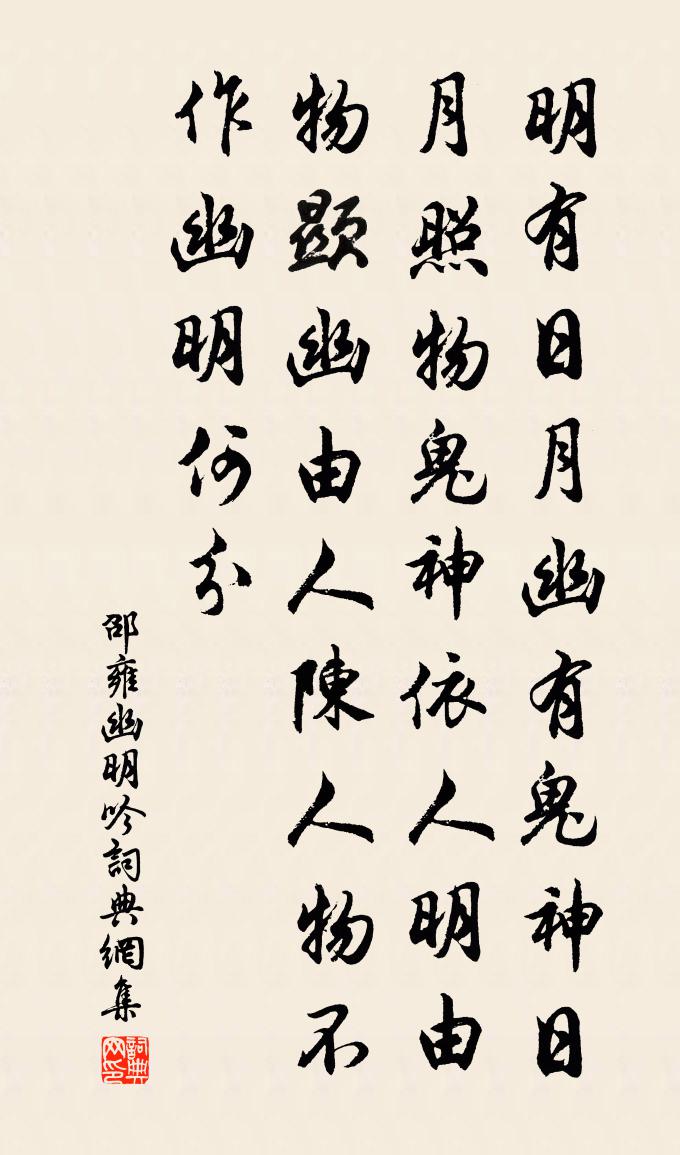 明有日月幽有鬼神日
月照物鬼神依人明由
物顯幽由人陳人物不
作幽明何分
邵雍幽明吟詞典網集
詞典网印